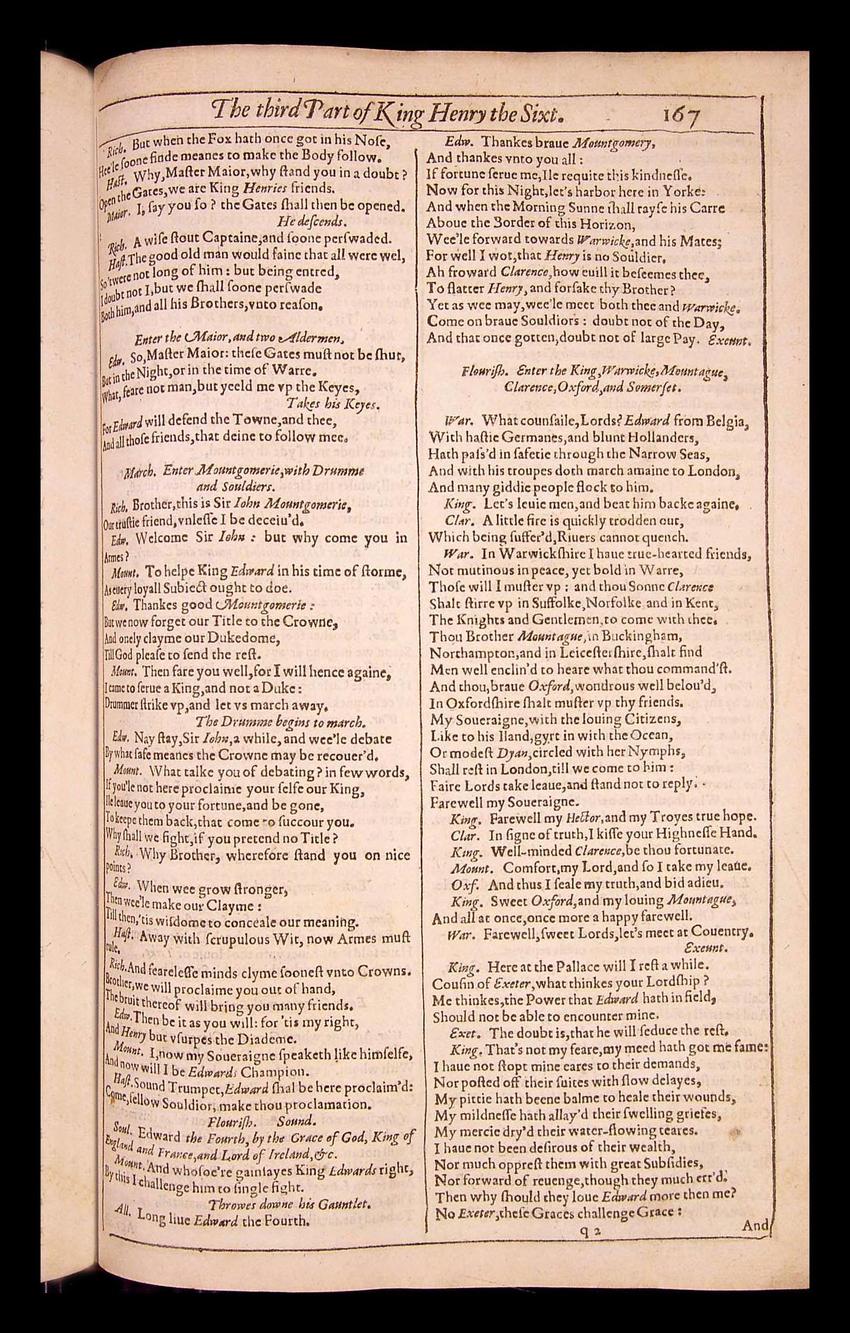 The third Part of King Henry the Sixt. 167
Rich. But when the Fox hath once got in his Nose,
Hee'le soone finde meanes to make the Body follow.
Hast. Why, Master Maior, why stand you in a doubt?
Open the Gates, we are King Henries friends.
Maior. I, say you so? the Gates shall then be opened.
He descends.
Rich. A wise stout Captaine, and soone perswaded.
Hast. The good old man would faine that all were wel,
So 'twere not long of him: but being entred,
I doubt not I, but we shall soone perswade
Both him, and all his Brothers, vnto reason.
Enter the Maior, and two Aldermen.
Edw. So, Master Maior: these Gates must not be shut,
But in the Night, or in the time of Warre.
What, feare not man, but yeeld me vp the Keyes,
Takes his Keyes.
For Edward will defend the Towne, and thee,
And all those friends, that deine to follow mee.
March. Enter Mountgomerie, with Drumme
and Souldiers.
Rich. Brother, this is Sir Iohn Mountgomerie,
Our trustie friend, vnlesse I be deceiu'd.
Edw. Welcome Sir Iohn: but why come you in
Armes?
Mount. To helpe King Edward in his time of storme,
As euery loyall Subiect ought to doe.
Edw. Thankes good Mountgomerie:
But we now forget our Title to the Crowne,
And onely clayme our Dukedome,
Till God please to send the rest.
Mount. Then fare you well, for I will hence againe,
I came to serue a King, and not a Duke:
Drummer strike vp, and let vs march away.
The Drumme begins to march.
Edw. Nay stay, Sir Iohn, a while, and wee'le debate
By what safe meanes the Crowne may be recouer'd.
Mount. What talke you of debating? in few words,
If you'le not here proclaime your selfe our King,
Ile leaue you to your fortune, and be gone,
To keepe them back, that come to succour you.
Why shall we fight, if you pretend no Title?
Rich. Why Brother, wherefore stand you on nice
points?
Edw. When wee grow stronger,
Then wee'le make our Clayme:
Till then, 'tis wisdome to conceale our meaning.
Hast. Away with scrupulous Wit, now Armes must
rule.
Rich. And fearelesse minds clyme soonest vnto Crowns.
Brother, we will proclaime you out of hand,
The bruit thereof will bring you many friends.
Edw. Then be it as you will: for 'tis my right,
And Henry but vsurpes the Diademe.
Mount. I, now my Soueraigne speaketh like himselfe,
And now will I be Edwards Champion.
Hast. Sound Trumpet, Edward shal be here proclaim'd:
Come, fellow Souldior, make thou proclamation.
Flourish. Sound.
Soul. Edward the Fourth, by the Grace of God, King of
England and France, and Lord of Ireland, &c.
Mount. And whosoe're gainsayes King Edwards right,
By this I challenge him to single fight.
Throwes downe his Gauntlet.
All. Long liue Edward the Fourth.
Edw. Thankes braue Mountgomery,
And thankes vnto you all:
If fortune serue me, Ile requite this kindnesse.
Now for this Night, let's harbor here in Yorke:
And when the Morning Sunne shall rayse his Carre
Aboue the Border of this Horizon,
Wee'le forward towards Warwicke, and his Mates;
For well I wot, that Henry is no Souldier.
Ah froward Clarence, how euill it beseemes thee,
To flatter Henry, and forsake thy Brother?
Yet as wee may, wee'le meet both thee and Warwicke.
Come on braue Souldiors: doubt not of the Day,
And that once gotten, doubt not of large Pay. Exeunt.
Flourish. Enter the King, Warwicke, Mountague,
Clarence, Oxford, and Somerset.
War. What counsaile, Lords? Edward from Belgia,
With hastie Germanes, and blunt Hollanders,
Hath pass'd in safetie through the Narrow Seas,
And with his troupes doth march amaine to London,
And many giddie people flock to him.
King. Let's leuie men, and beat him backe againe.
Clar. A little fire is quickly trodden out,
Which being suffer'd, Riuers cannot quench.
War. In Warwickshire I haue true-hearted friends,
Not mutinous in peace, yet bold in Warre,
Those will I muster vp: and thou Sonne Clarence
Shalt stirre vp in Suffolke, Norfolke, and in Kent,
The Knights and Gentlemen, to come with thee.
Thou Brother Mountague, in Buckingham,
Northampton, and in Leicestershire, shalt find
Men well enclin'd to heare what thou command'st.
And thou, braue Oxford, wondrous well belou'd,
In Oxfordshire shalt muster vp thy friends.
My Soueraigne, with the louing Citizens,
Like to his Iland, gyrt in with the Ocean,
Or modest Dyan, circled with her Nymphs,
Shall rest in London, till we come to him:
Faire Lords take leaue, and stand not to reply.
Farewell my Soueraigne.
King. Farewell my Hector, and my Troyes true hope.
Clar. In signe of truth, I kisse your Highnesse Hand.
King. Well-minded Clarence, be thou fortunate.
Mount. Comfort, my Lord, and so I take my leaue.
Oxf. And thus I seale my truth, and bid adieu.
King. Sweet Oxford, and my louing Mountague,
And all at once, once more a happy farewell.
War. Farewell, sweet Lords, let's meet at Couentry.
Exeunt.
King. Here at the Pallace will I rest a while.
Cousin of Exeter, what thinkes your Lordship?
Me thinkes, the Power that Edward hath in field,
Should not be able to encounter mine.
Exet. The doubt is, that he will seduce the rest.
King. That's not my feare, my meed hath got me fame:
I haue not stopt mine eares to their demands,
Nor posted off their suites with slow delayes,
My pittie hath beene balme to heale their wounds,
My mildnesse hath allay'd their swelling griefes,
My mercie dry'd their water-flowing teares.
I haue not been desirous of their wealth,
Nor much opprest them with great Subsidies,
Nor forward of reuenge, though they much err'd.
Then why should they loue Edward more then me?
No Exeter, these Graces challenge Grace:
q 2 And